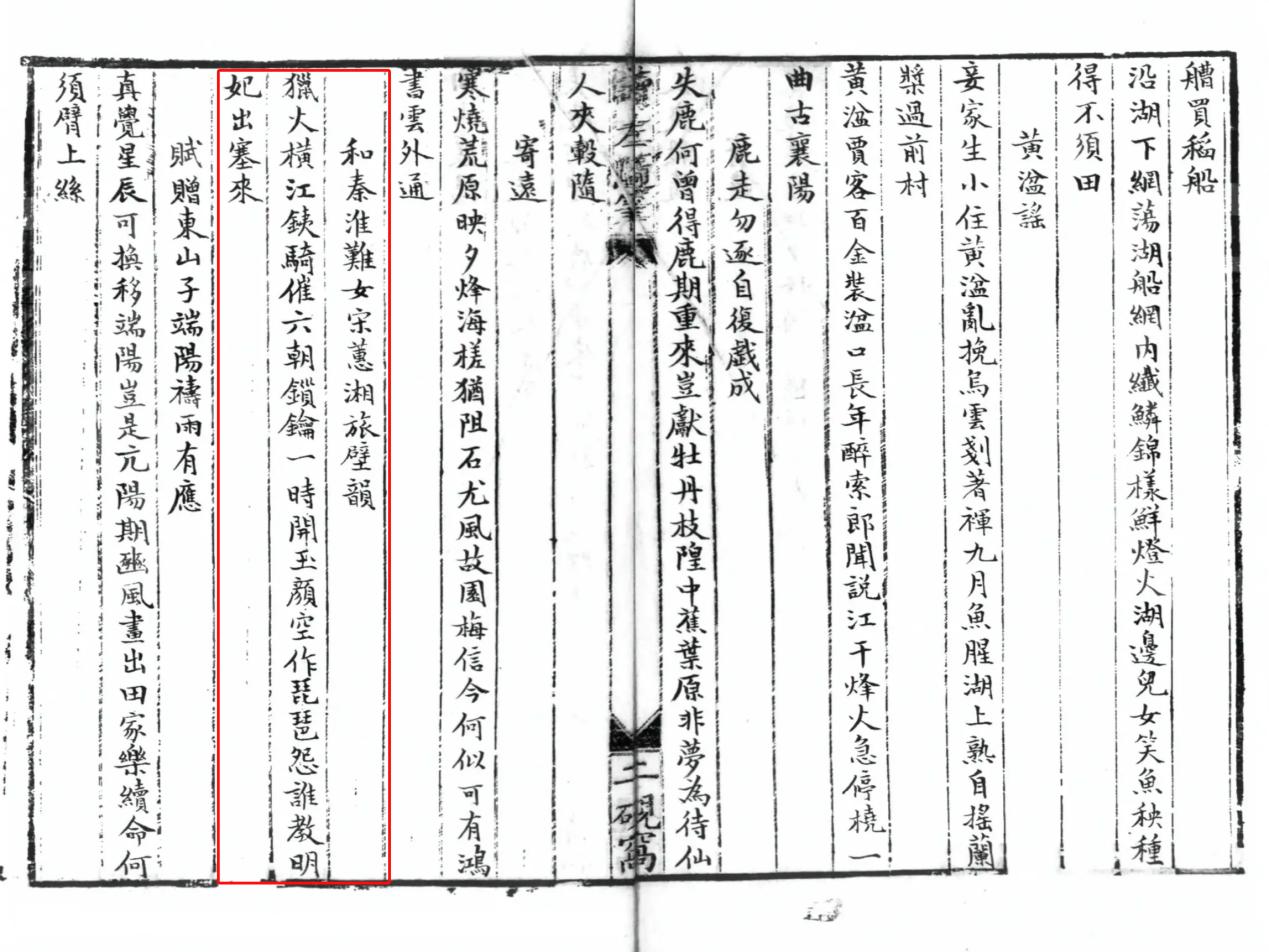 艚買稻船
沿湖下網蕩湖船網内纖鱗錦樣鮮燈火湖邊兒女笑魚秧種
得不須田
黃湓謠
妾家生小住黃湓亂挽烏雲剗著褌九月魚腥湖上熟自搖蘭
槳過前村
黃湓賈客百金裝湓口長年醉索郎聞説江干烽火急停橈一
曲古襄陽
鹿走勿逐自復戲成
失鹿何曾得鹿期重來豈獻牡丹枝隍中蕉葉原非夢為待仙
人夾轂隨
二硯窩
寄遠
寒燒荒原映夕烽海槎猶阻石尤風故園梅信今何似可有鴻
書雲外通
和秦淮難女宋蕙湘旅壁韻
獵火橫江鐵騎催六朝鎖鑰一時開玉顏空作琵琶怨誰教明
妃出塞來
賦贈東山子端陽禱雨有應
真覺星辰可換移端陽豈是亢陽期豳風畫出田家樂續命何
須臂上絲